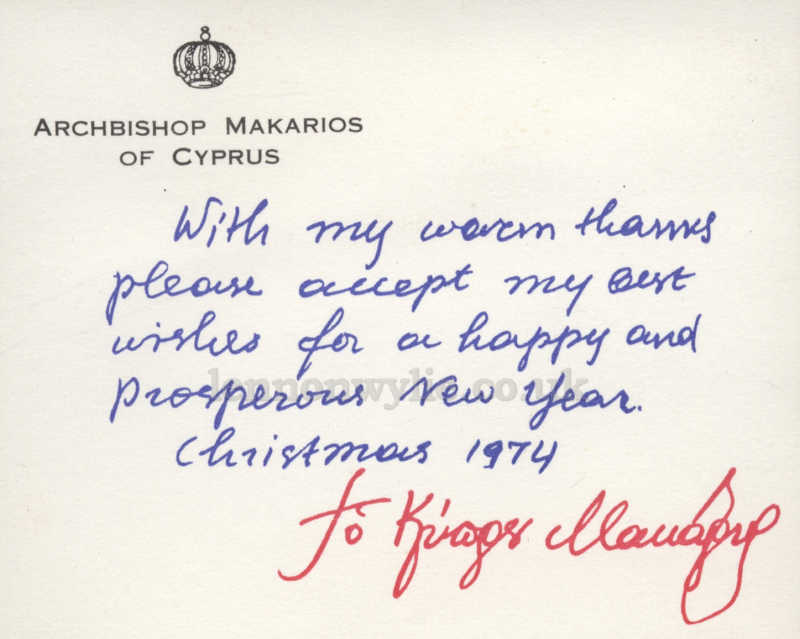 ARCHBISHOP MAKARIOS
OF CYPRUS
With my warm thanks
please accept my best
wishes for a happy and
prosperous New Year.
lennonwylie.co.uk
Christmas 1974
† ὁ Κύπρου Μακάριος